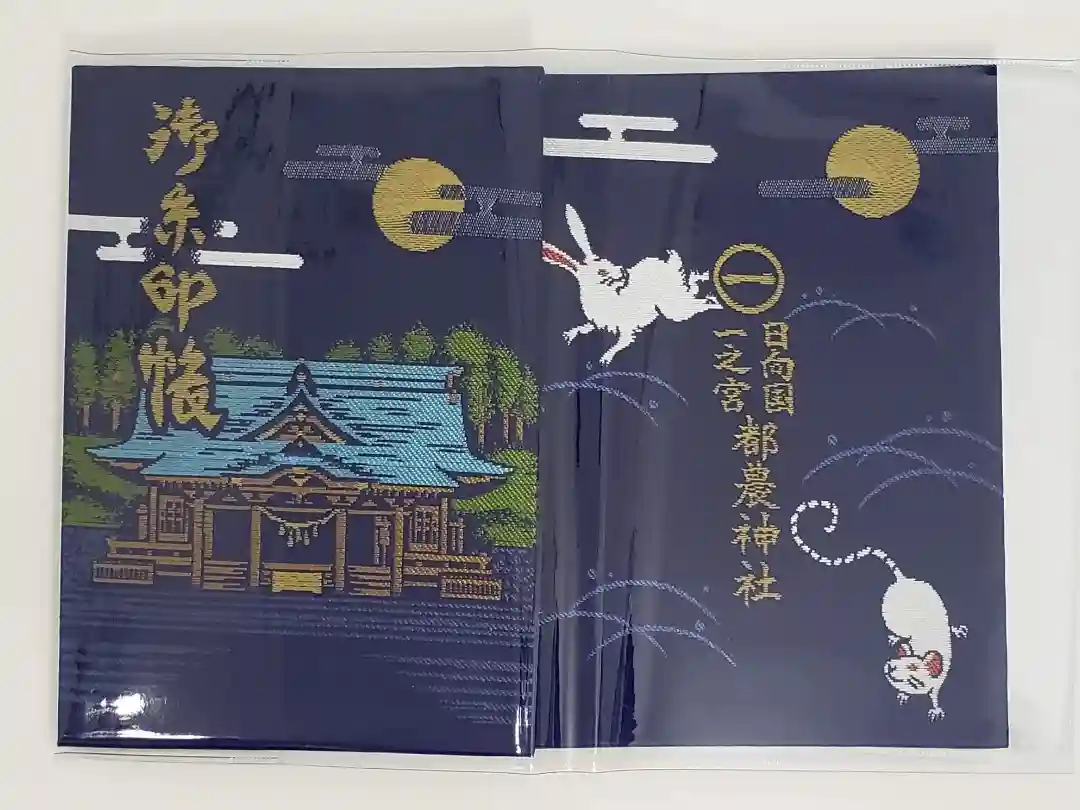 御朱印帳
㊀
日向国
一之宮
都農神社